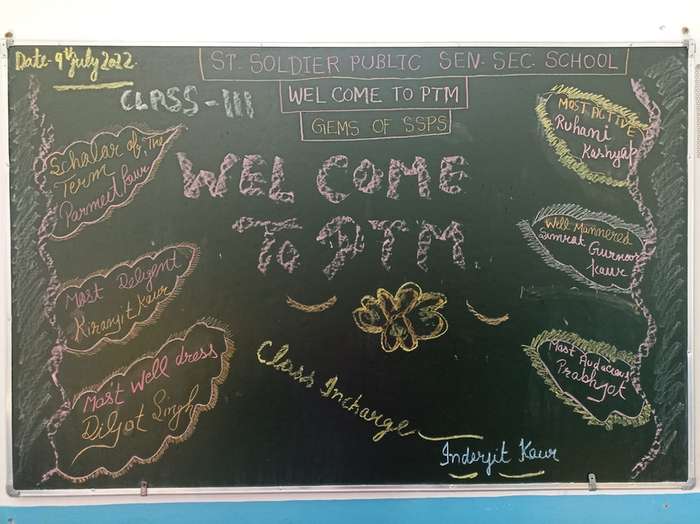 Date- 9th July 2022.
ST. SOLDIER PUBLIC SEN. SEC. SCHOOL
CLASS-III
WEL COME TO PTM
GEMS OF SSPS
Scholar of The
Term
Parmeet Kaur
MOST ACTIVE
Ruhani
Kashyap
WEL COME
To PTM.
Well Mannered
Simrat Gurnoor
Kaur
Most Deligent
Kiranjit Kaur
Most Well dress
Diljot Singh
Most Audaceous
Prabhjot
Class Incharge
Inderjit Kaur